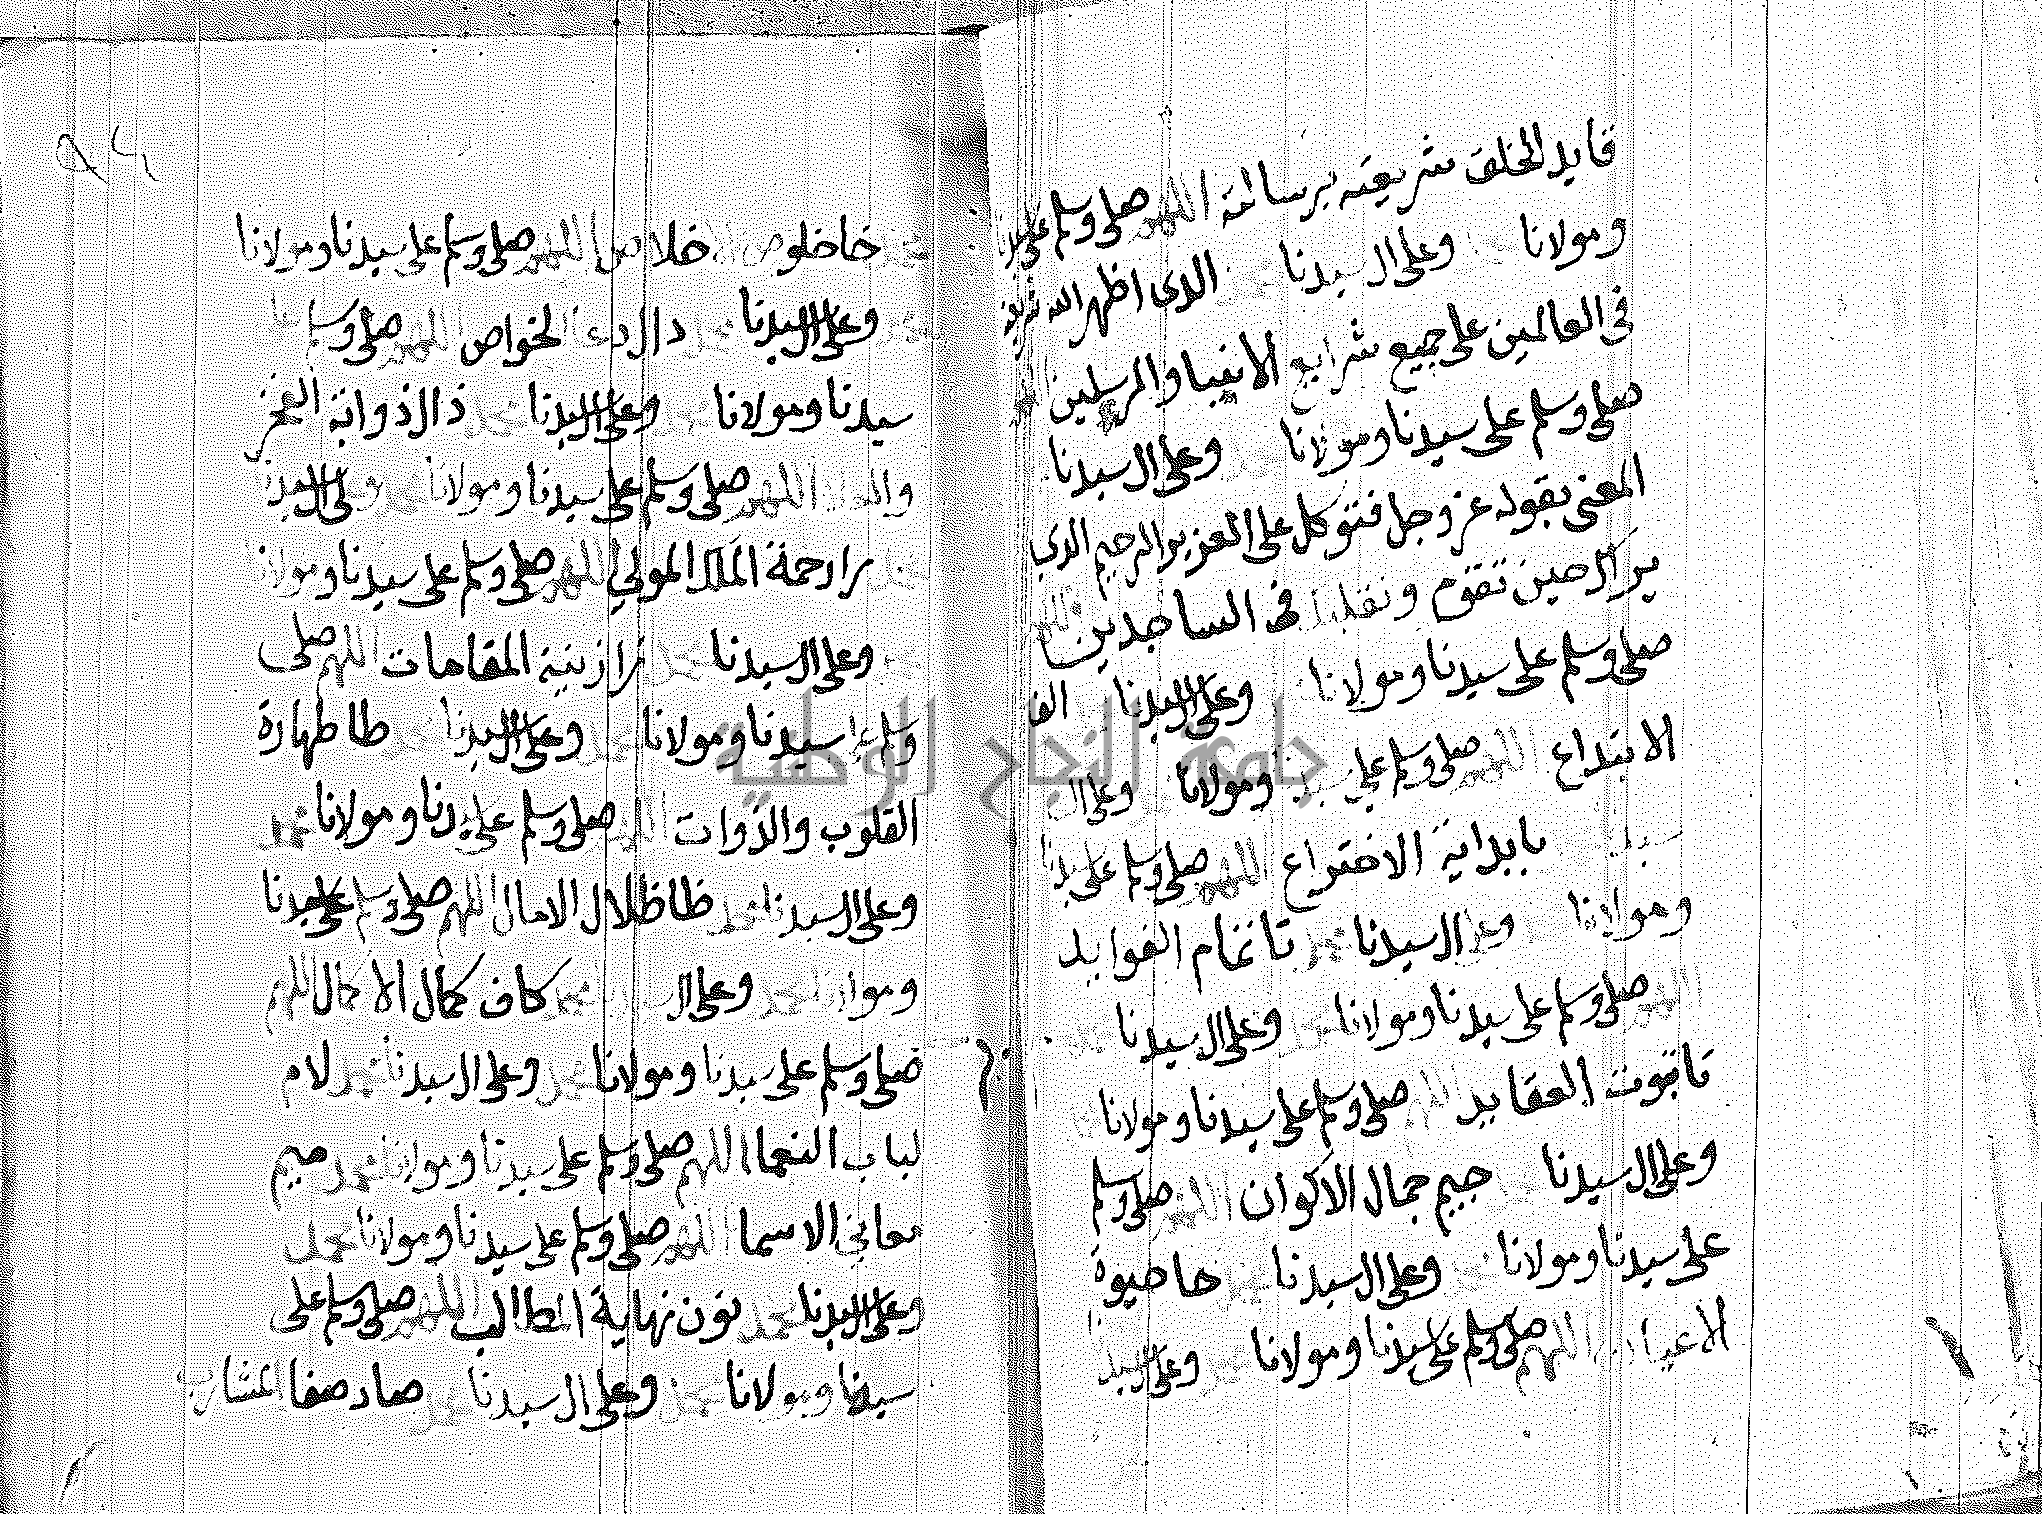 قايد الخلق بشريعته برسالته اللهم صلى وسلم على
ومولانا وعلى ال سيدنا الذى اظهر الله
فى العالمين على جميع شرايع الانبيا والمرسلين
صلى وسلم على سيدنا ومولانا وعلى ال سيدنا
المعنى بقوله عز وجل فتوكل على العزيز الرحيم الذي
يراك حين تقوم وتقلبك فى الساجدين اللهم
صلى وسلم على سيدنا ومولانا وعلى ال سيدنا الف
الابتداع اللهم صلى وسلم على سيدنا ومولانا وعلى ال
سيدنا با بداية الاختراع اللهم صلى وسلم على سيدنا
ومولانا وعلى ال سيدنا محمد تا تمام الفوايد
اللهم صلى وسلم على سيدنا ومولانا محمد وعلى ال سيدنا
ثا ثبوت العقايد اللهم صلى وسلم على سيدنا ومولانا
وعلى ال سيدنا جيم جمال الاكوان اللهم صلى وسلم
على سيدنا ومولانا وعلى ال سيدنا حا حيوة
الاعيان اللهم صلى وسلم على سيدنا ومولانا وعلى ال سيدنا
خا خلوص الاخلاص اللهم صلى وسلم على سيدنا ومولانا
وعلى ال سيدنا محمد دال دعا الخواص اللهم صلى وسلم
سيدنا ومولانا وعلى ال سيدنا محمد ذال ذوابة الفخر
اللهم صلى وسلم على سيدنا ومولانا وعلى ال سيدنا
را رحمة الملك المولي اللهم صلى وسلم على سيدنا ومولانا
وعلى ال سيدنا محمد زا زينة المقامات اللهم صلى
وسلم على سيدنا ومولانا محمد وعلى ال سيدنا طا طهارة
القلوب والذوات اللهم صلى وسلم على سيدنا ومولانا محمد
وعلى ال سيدنا محمد ظا ظلال الامال اللهم صلى وسلم على سيدنا
ومولانا محمد وعلى ال سيدنا محمد كاف كمال الاكمال اللهم
صلى وسلم على سيدنا ومولانا محمد وعلى ال سيدنا محمد لام
لباب النعما اللهم صلى وسلم على سيدنا ومولانا محمد ميم
معاني الاسما اللهم صلى وسلم على سيدنا ومولانا محمد
وعلى ال سيدنا محمد نون نهاية المطالب اللهم صلى وسلم على
سيدنا ومولانا محمد وعلى ال سيدنا صاد صفا المشارب
جامعة النجاح الوطنية